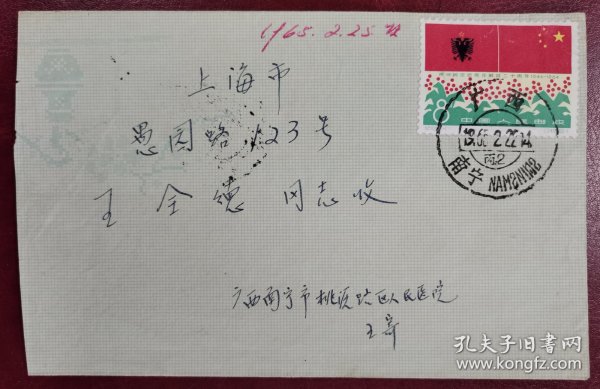 1965.2.25
上海市
愚园路 123号
王全德 同志收
广西南宁市桃源路区人民医院
王寄
8
广西
1965.2.22.14
南宁 NAMZNINGZ
孔夫子旧书网
www.kongfz.com